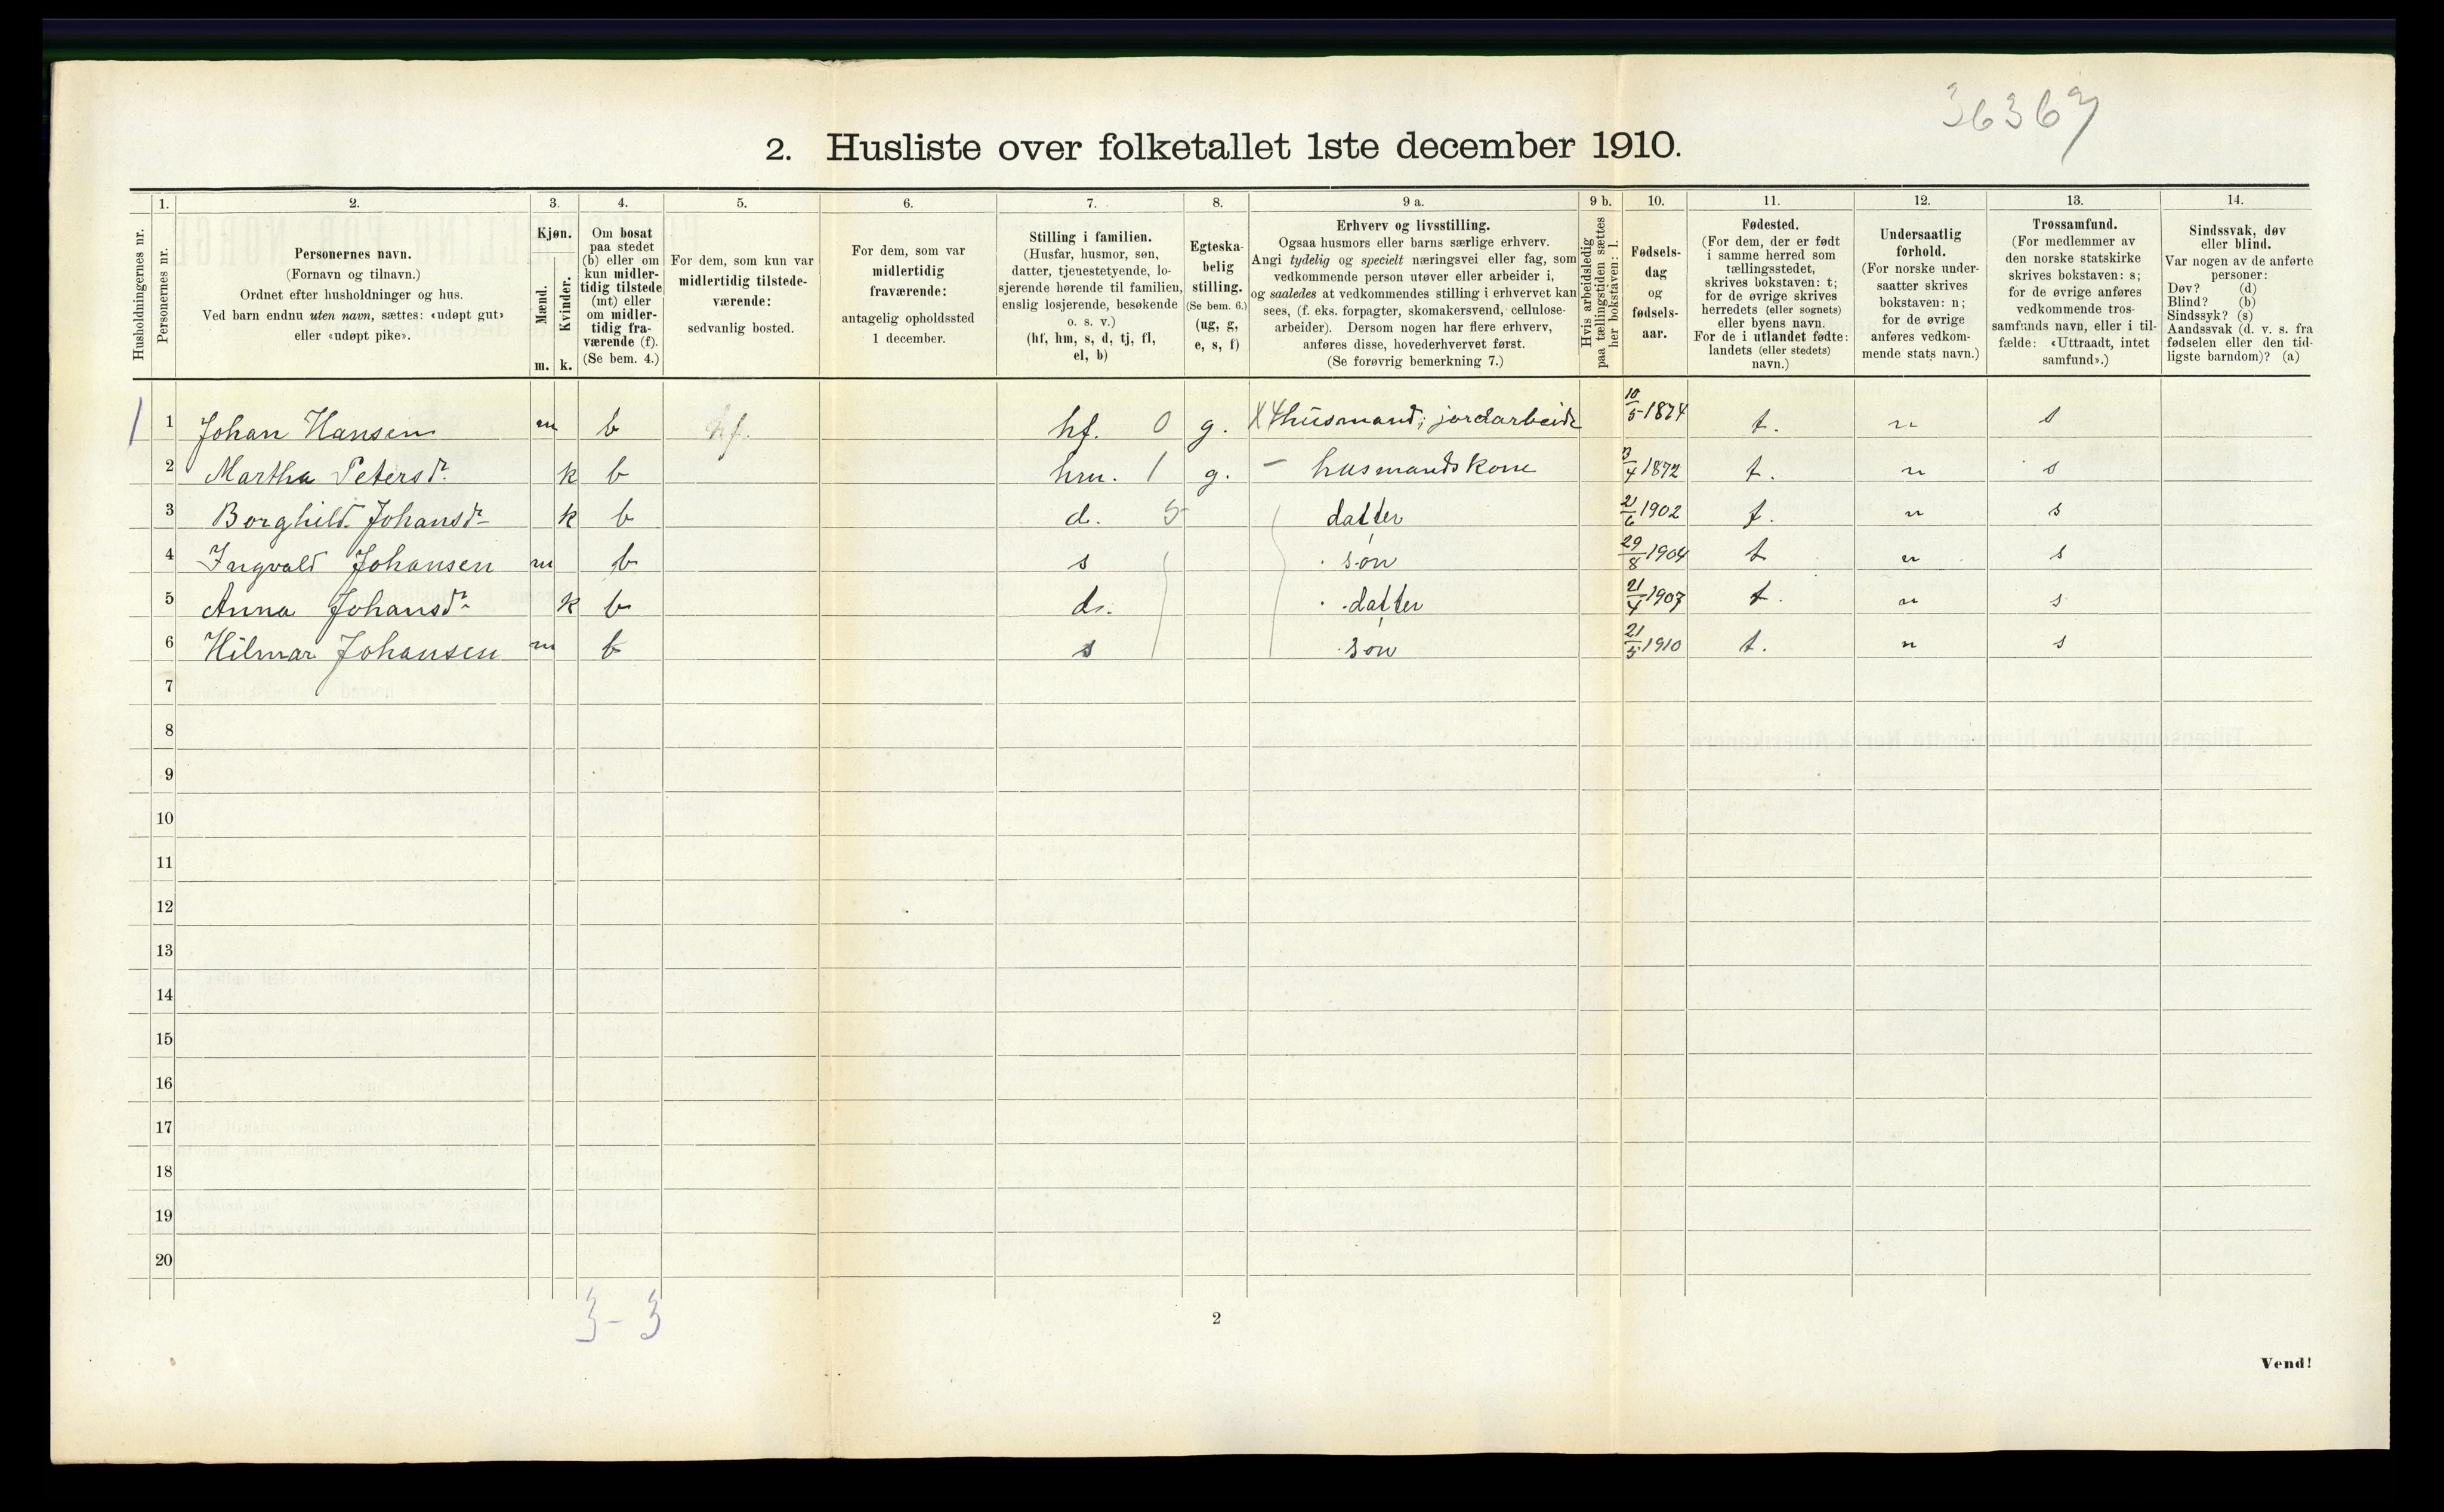 36367
2. Husliste over folketallet 1ste december 1910.
Husholdningernes nr.
1.
Personernes nr.
2.
Personernes navn.
(Fornavn og tilnavn.)
Ordnet efter husholdninger og hus.
Ved barn endnu uten navn, sættes: «udøpt gut»
eller «udøpt pike».
3.
Kjøn.
Mænd.
Kvinder.
m. k.
4.
Om bosat
paa stedet
(b) eller om
kun midler-
tidig tilstede
(mt) eller
om midler-
tidig fra-
værende (f).
(Se bem. 4.)
5.
For dem, som kun var
midlertidig tilstede-
værende:
sedvanlig bosted.
6.
For dem, som var
midlertidig
fraværende:
antagelig opholdssted
1 december.
7.
Stilling i familien.
(Husfar, husmor, søn,
datter, tjenestetyende, lo-
sjerende hørende til familien,
enslig losjerende, besøkende
o. s. v.)
(hf, hm, s, d, tj, fl,
el, b)
8.
Egteska-
belig
stilling.
(Se bem. 6.)
(ug, g,
e, s, f)
9 a.
Erhverv og livsstilling.
Ogsaa husmors eller barns særlige erhverv.
Angi tydelig og specielt næringsvei eller fag, som
vedkommende person utøver eller arbeider i,
og saaledes at vedkommendes stilling i erhvervet kan
sees, (f. eks. forpagter, skomakersvend, cellulose-
arbeider). Dersom nogen har flere erhverv,
anføres disse, hovederhvervet først.
(Se forøvrig bemerkning 7.)
9 b.
Hvis arbeidsledig
paa tællingstiden sættes
her bokstaven: l.
10.
Fødsels-
dag
og
fødsels-
aar.
11.
Fødested.
(For dem, der er født
i samme herred som
tællingsstedet,
skrives bokstaven: t;
for de øvrige skrives
herredets (eller sognets)
eller byens navn.
For de i utlandet fødte:
landets (eller stedets)
navn.)
12.
Undersaatlig
forhold.
(For norske under-
saatter skrives
bokstaven: n;
for de øvrige
anføres vedkom-
mende stats navn.)
13.
Trossamfund.
(For medlemmer av
den norske statskirke
skrives bokstaven: s;
for de øvrige anføres
vedkommende tros-
samfunds navn, eller i til-
fælde: «Uttraadt, intet
samfund».)
14.
Sindssvak, døv
eller blind.
Var nogen av de anførte
personer:
Døv? (d)
Blind? (b)
Sindssyk? (s)
Aandssvak (d. v. s. fra
fødselen eller den tid-
ligste barndom)? (a)
1 1 Johan Hansen m b hf. hf. 0 g. X4 husmand; jordarbeide 10/5 1874 t. n s
2 Martha Petersdr. k b hm. 1 g. – husmandskone 3/4 1872 t. n s
3 Borghild Johansdr k b d. 5 datter 21/6 1902 t. n s
4 Ingvald Johansen m b s søn 29/8 1904 t n s
5 Anna Johansdr k b d. datter 21/4 1907 t. n s
6 Hilmar Johansen m b s søn 21/5 1910 t. n s
7
8
9
10
11
12
13
14
15
16
17
18
19
20
3-3
2
Vend!